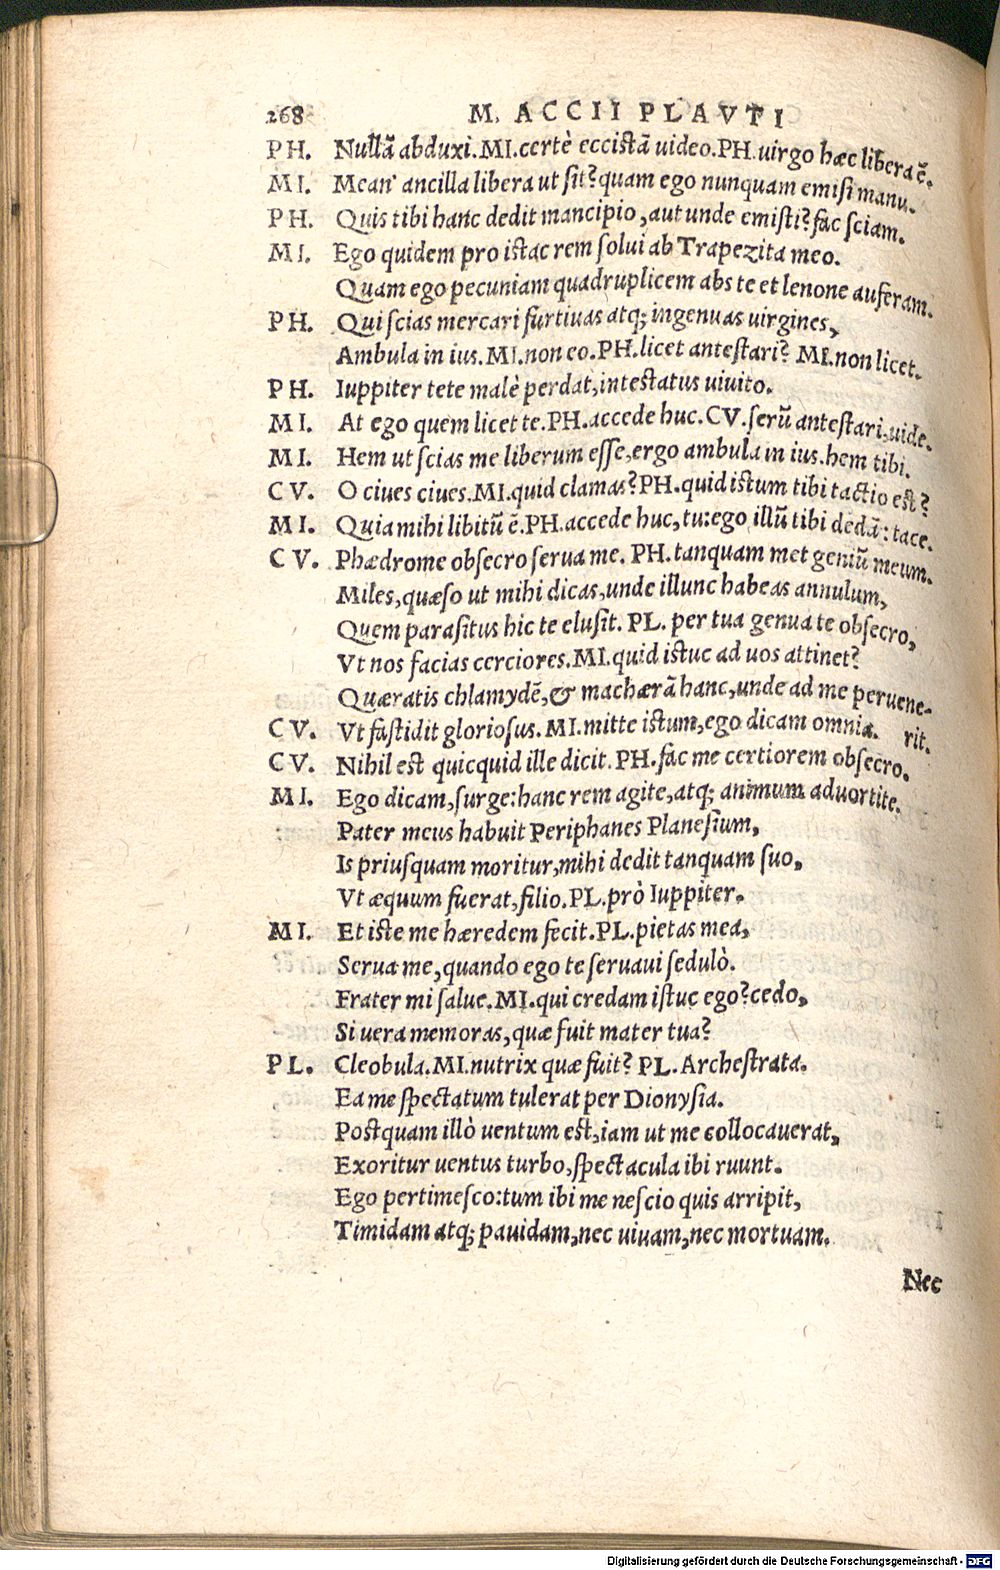 268 M. ACCII PLAVTI
PH. Nullã abduxi. MI. certè eccistã uideo. PH. uirgo hæc libera ẽ.
MI. Mean' ancilla libera ut sit? quam ego nunquam emisi manu.
PH. Quis tibi hanc dedit mancipio, aut unde emisti? fac sciam.
MI. Ego quidem pro istac rem solui ab Trapezita meo.
Quam ego pecuniam quadruplicem abs te et lenone auferam.
PH. Qui scias mercari furtiuas atq; ingenuas uirgines,
Ambula in ius. MI. non eo. PH. licet antestari? MI. non licet.
PH. Iuppiter tete malè perdat, intestatus uiuito.
MI. At ego quem licet te. PH. accede huc. CV. serũ antestari, uide.
MI. Hem ut scias me liberum esse, ergo ambula in ius. hem tibi.
CV. O ciues ciues. MI. quid clamas? PH. quid istum tibi tactio est?
MI. Quia mihi libitũ ẽ. PH. accede huc, tu: ego illũ tibi dedã: tace.
CV. Phædrome obsecro serua me. PH. tanquam met geniũ meum.
Miles, quæso ut mihi dicas, unde illunc habeas annulum,
Quem parasitus hic te elusit. PL. per tua genua te obsecro,
Vt nos facias cerciores. MI. quid istuc ad uos attinet?
Quæratis chlamydẽ, & machærã hanc, unde ad me peruene-
CV. Vt fastidit gloriosus. MI. mitte istum, ego dicam omnia. rit.
CV. Nihil est quicquid ille dicit. PH. fac me certiorem obsecro.
MI. Ego dicam, surge: hanc rem agite, atq; animum aduortite.
Pater meus habuit Periphanes Planesium,
Is priusquam moritur, mihi dedit tanquam suo,
Vt æquum fuerat, filio. PL. prò Iuppiter.
MI. Et iste me hæredem fecit. PL. pietas mea,
Serua me, quando ego te seruaui sedulò.
Frater mi salue. MI. qui credam istuc ego? cedo,
Si uera memoras, quæ fuit mater tua?
PL. Cleobula. MI. nutrix quæ fuit? PL. Archestrata.
Ea me spectatum tulerat per Dionysia.
Postquam illò uentum est, iam ut me collocauerat,
Exoritur uentus turbo, spectacula ibi ruunt.
Ego pertimesco: tum ibi me nescio quis arripit,
Timidam atq; pauidam, nec uiuam, nec mortuam.
Nec
Digitalisierung gefördert durch die Deutsche Forschungsgemeinschaft - DFG